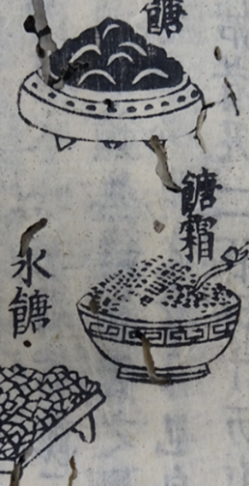 餹
餹霜
氷餹